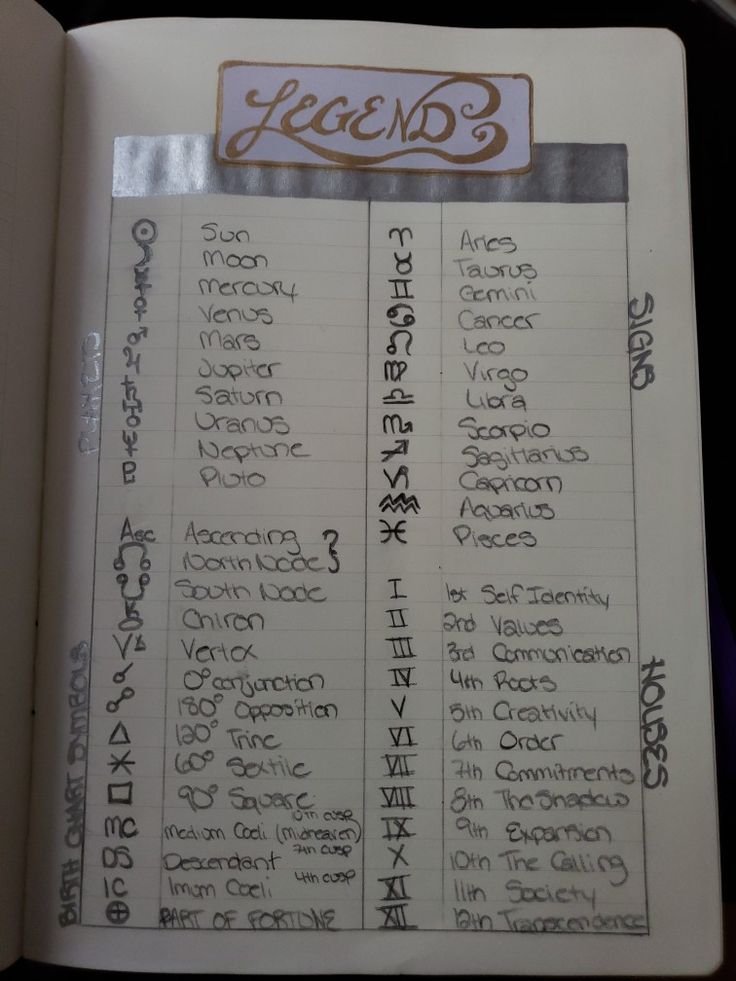 LEGEND
PLANETS
☉ Sun
☽ Moon
☿ Mercury
♀ Venus
♂ Mars
♃ Jupiter
♄ Saturn
♅ Uranus
♆ Neptune
♇ Pluto
BIRTH CHART SYMBOLS
Asc Ascending
☊ North Node
☋ South Node
⚷ Chiron
Vertex
☌ 0° conjunction
☍ 180° Opposition
△ 120° Trine
⚹ 60° Sextile
□ 90° Square
MC Medium Coeli (midheaven) 10th cusp
DS Descendant 7th cusp
IC Imum Coeli 4th cusp
⊕ PART OF FORTUNE
SIGNS
♈ Aries
♉ Taurus
♊ Gemini
♋ Cancer
♌ Leo
♍ Virgo
♎ Libra
♏ Scorpio
♐ Sagittarius
♑ Capricorn
♒ Aquarius
♓ Pisces
HOUSES
I 1st Self Identity
II 2nd Values
III 3rd Communication
IV 4th Roots
V 5th Creativity
VI 6th Order
VII 7th Commitments
VIII 8th The Shadow
IX 9th Expansion
X 10th The Calling
XI 11th Society
XII 12th Transcendence